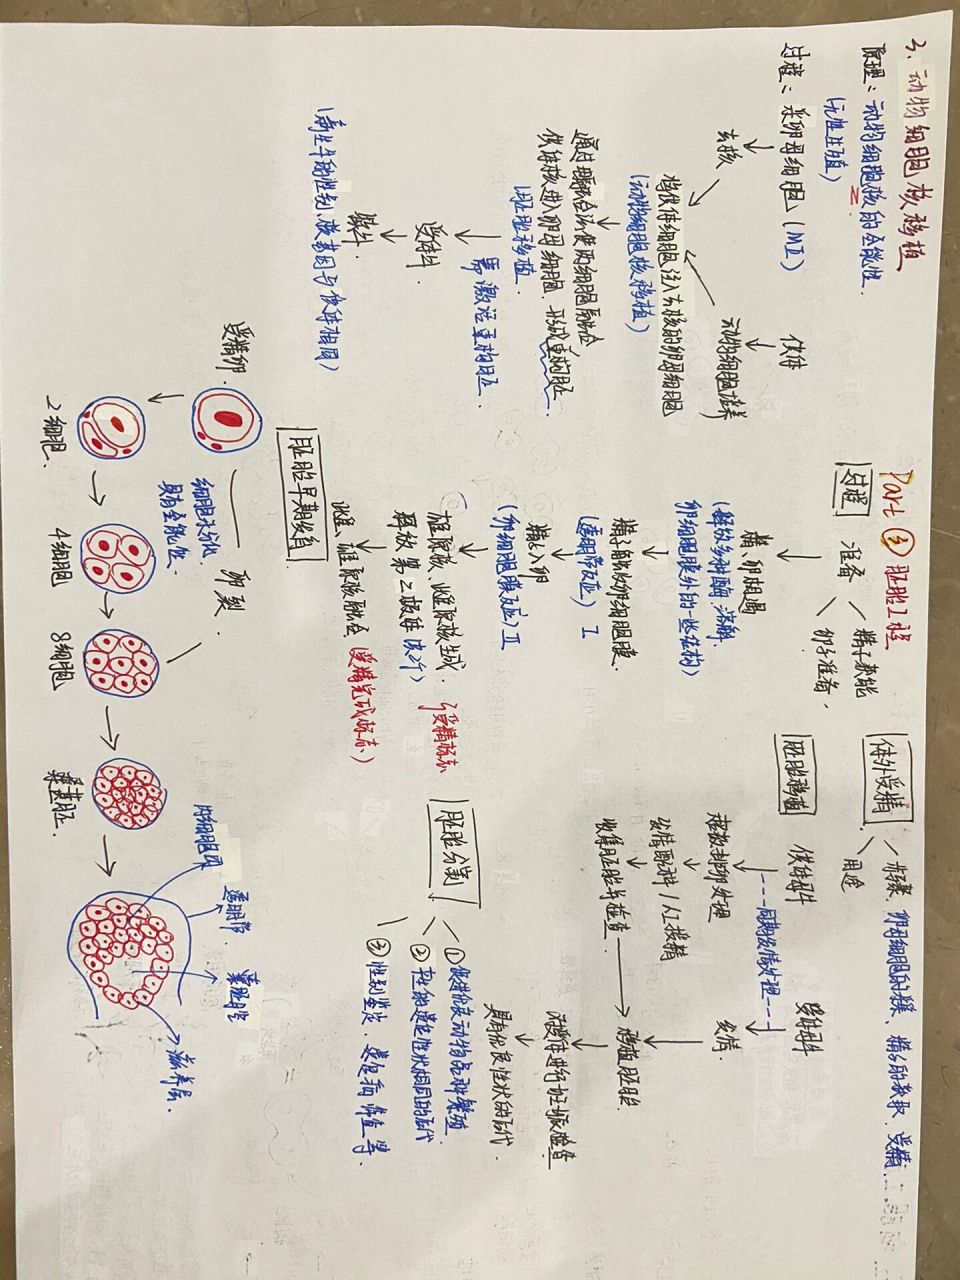 3. 动物细胞核移植
原理：动物细胞核的全能性.
(无性生殖)
过程：采卵母细胞(MⅡ)
供体
去核
动物细胞培养
将供体细胞注入去核的卵母细胞
(动物细胞核移植)
供体核进入卵母细胞，形成重构胚.
胚胎移植.
激活重构胚.
受体牛
犊牛
(新生牛的性别、核基因与供体相同)
Part ③ 胚胎工程
过程
准备
精子获能
卵子准备.
精、卵相遇
(释放多种酶，溶解
卵细胞膜外的一些结构)
精子触及卵细胞膜
(透明带反应) Ⅰ
精子入卵
(卵细胞膜反应) Ⅱ
雄原核、雌原核形成.
释放第二极体
受精标志
雌、雄原核融合 (受精完成标志)
体外受精
步骤：卵母细胞的采集、精子的获取、受精
用途
胚胎移植
供体母牛
受体母牛
---同期发情处理---
超数排卵处理
发情
发情配种/人工授精
收集胚胎并检查
移植胚胎
对受体进行妊娠检查
具有优良性状的后代
胚胎分割
① 促进优良动物品种繁殖.
② 产生的遗传性状相同的后代
③ 性别鉴定、遗传病筛查等.
胚胎早期发育
受精卵.
卵裂.
细胞未分化
具有全能性.
2细胞.
4细胞
8细胞
桑葚胚.
内细胞团
透明带.
囊胚腔
滋养层.